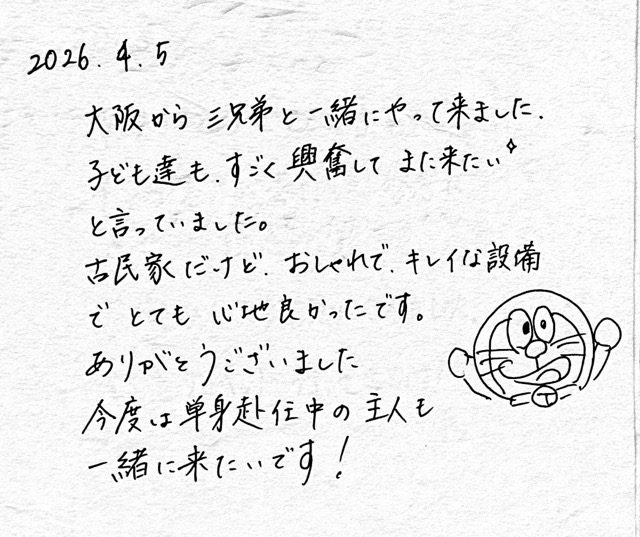 2026.4.5
大阪から三兄弟と一緒にやって来ました.
子ども達も、すごく興奮して また来たい
と言っていました。
古民家だけど、おしゃれで、キレイな設備
で とても 心地良かったです。
ありがとうございました
今度は単身赴任中の主人も
一緒に来たいです！